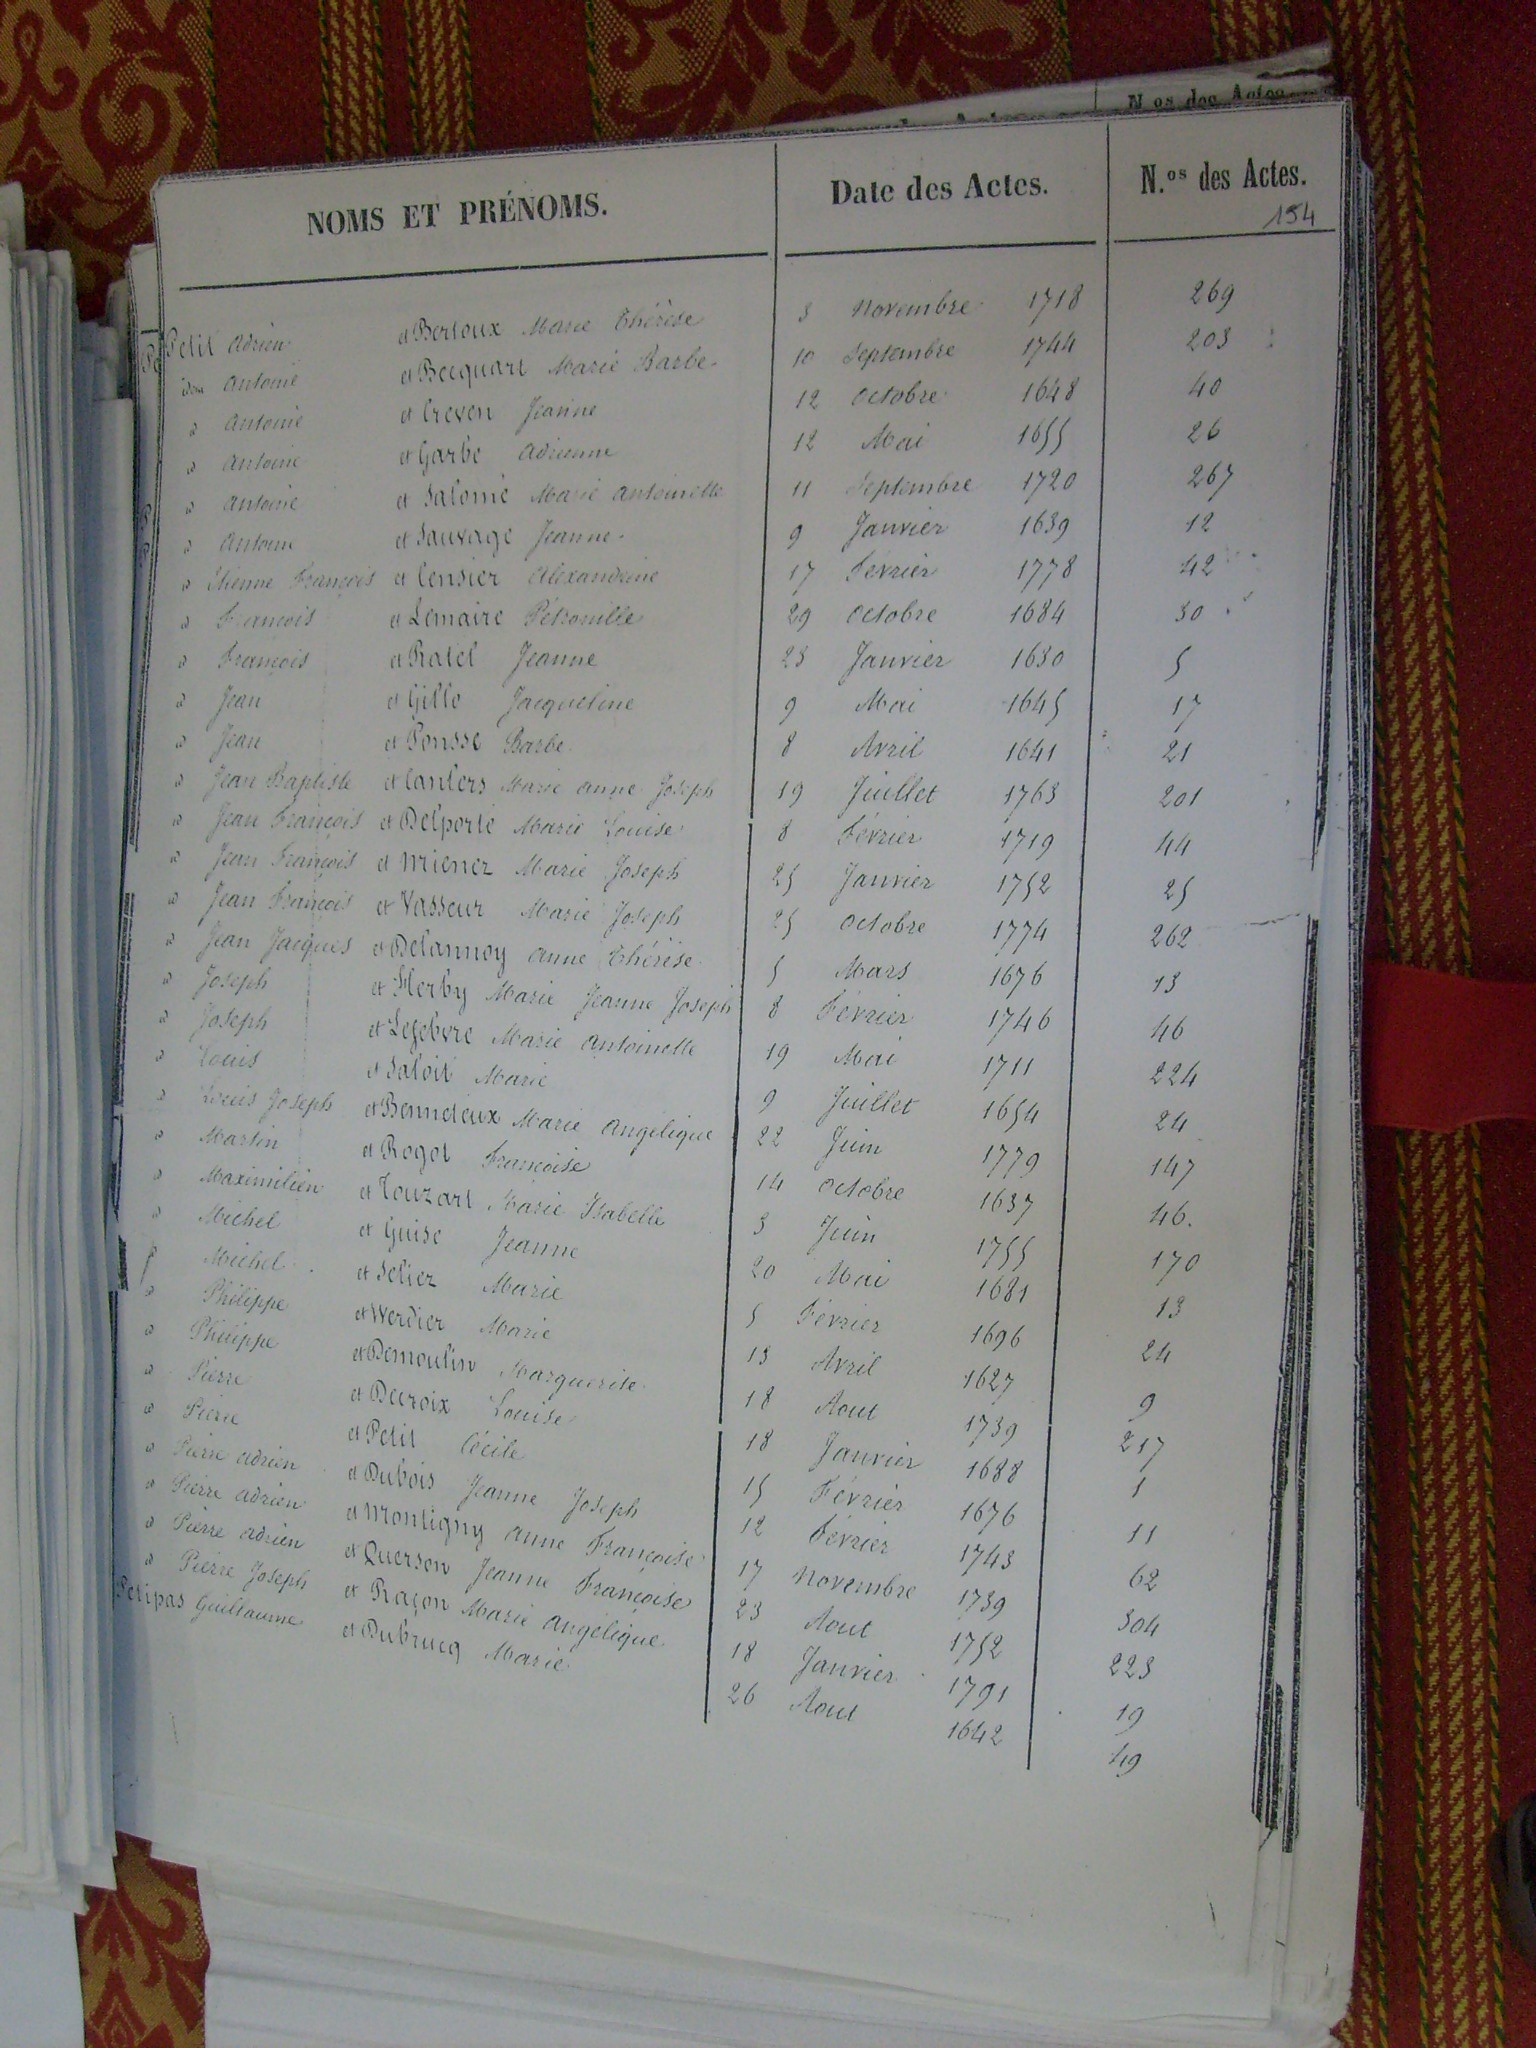 N.os des Actes
NOMS ET PRÉNOMS. Date des Actes. N.os des Actes.
154
Petit Adrien et Bertoux Marie Thérèse 3 Novembre 1718 269
idem Antoine et Becquart Marie Barbe 10 Septembre 1744 203
id Antoine et Creven Jeanne 12 Octobre 1648 40
id Antoine et Garbe Adrienne 12 Mai 1655 26
id Antoine et Salomé Marie Antoinette 11 Septembre 1720 267
id Antoine et Sauvage Jeanne 9 Janvier 1639 12
id Etienne François et Censier Alexandrine 17 Février 1778 42
id François et Lemaire Pétronille 29 Octobre 1684 30
id François et Ratel Jeanne 23 Janvier 1630 5
id Jean et Gille Jacqueline 9 Mai 1645 17
id Jean et Ponsse Barbe 8 Avril 1641 21
id Jean Baptiste et Canlers Marie Anne Joseph 19 Juillet 1763 201
id Jean François et Delporte Marie Louise 8 Février 1719 44
id Jean François et Wienez Marie Joseph 25 Janvier 1752 25
id Jean François et Vasseur Marie Joseph 25 Octobre 1774 262
id Jean Jacques et Delannoy Anne Thérèse 5 Mars 1676 13
id Joseph et Herby Marie Jeanne Joseph 8 Février 1746 46
id Joseph et Lefebvre Marie Antoinette 19 Mai 1711 224
id Louis et Saloit Marie 9 Juillet 1654 24
id Louis Joseph et Bennedeux Marie Angélique 22 Juin 1779 147
id Martin et Rogot Françoise 14 Octobre 1637 46.
id Maximilien et Touzart Marie Isabelle 3 Juin 1755 170
id Michel et Guise Jeanne 20 Mai 1681 13
Michel et Seliez Marie 5 Février 1696 24
id Philippe et Werdier Marie 13 Avril 1627 9
id Philippe et Demoulin Marguerite 18 Aout 1739 217
id Pierre et Decroix Louise 18 Janvier 1688 1
id Pierre et Petit Cécile 15 Février 1676 11
id Pierre Adrien et Dubois Jeanne Joseph 12 Février 1743 62
id Pierre Adrien et Montigny Anne Françoise 17 Novembre 1739 304
id Pierre Adrien et Querson Jeanne Françoise 23 Aout 1752 223
id Pierre Joseph et Raçon Marie Angélique 18 Janvier 1791 19
Petipas Guillaume et Dubrucq Marie 26 Aout 1642 49